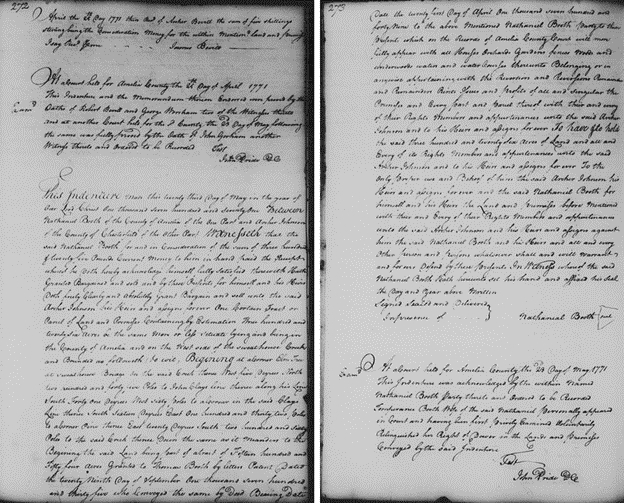 272
April the 25 Day 1771 then Recd of Archer Bevill the sum of five shillings
sterling being the Consideration Money for the within Mention'd land and
James Bevill
At a Court held for Amelia County the 25 Day of April 1771
This Indenture and the Memorandum thereon Endorsed were proved by the
Oaths of Robert Bevill and George Worsham two of the Witnesses thereto
and at another Court held for the sd County the 23 Day of May following
the same was fully proved by the Oath of John Gorham another
Witness thereto and ordered to be Recorded Test
John Pride DC
Exam'd
This Indenture Made this twenty third Day of May in the year of
Our Lord Christ one thousand seven hundred and seventy One Between
Nathanial Booth of the County of Amelia of the One Part and Archer Johnson
of the County of Chesterfield of the Other Part Witnesseth that the
said Nathanial Booth for and in Consideration of the sum of three hundred
& twenty five Pounds Current Money to him in hand Paid the Receipt
whereof he Doth hereby acknowledge himself fully Satisfied therewith Hath
Granted Bargained and sold and by these Presents for himself and his Heirs
Doth fully Clearly and Absolutely Grant Bargain and sell unto the said
Archer Johnson his Heirs and Assigns forever One Certain Tract or
Parcel of Land and Premises Containing by Estimation three hundred and
twenty six Acres be the same More or less Situate lying and being in
the County of Amelia and on the West side of the sweathouse Creek
and Bounded as followeth to wit, Begining at a Corner Elm Tree
at sweathouse Bridge on the said Creek thence West five Degrees North
two hundred and forty five Poles to John Clays line thence along his Line
South Forty one Degrees West sixty Poles to a Corner in the said Clays
Line thence South Sixteen Degrees East One hundred and thirty two Poles
to a Corner Pine thence East twenty Degrees South two hundred and Sixty
Poles to the said Creek thence Down the same as it Meanders to the
Begining the said Land being part of a Tract of Fifteen hundred and
Fifty four Acres Granted to Thomas Booth by letters Patent Dated
the twenty Ninth Day of September One thousand seven hundred
and thirty five who Conveyed the same by Deed Bearing Date
273
Date the twenty first Day of April One thousand seven hundred and
forty Nine to the above Mentioned Nathanial Booth Party to these
Presents which on the Records of Amelia County Court will more
fully appear with all Houses Orchards Gardens fences Woods and
underwoods waters and water Courses thereunto Belonging or in
anywise appertaining with the Reversion and Reversions Remainder
and Remainders Rents Issues and Profits of all and singular the
Premises and Every part and Parcel thereof with their and every
of their Rights Members and appurtenances unto the said Archer
Johnson and to his Heirs and Assigns forever To have & to hold
the said three hundred and twenty six Acres of Land and all and
Every of its Rights Members and appurtenances unto the said
Archer Johnson and to his Heirs and assigns forever To the
only Proper use and Behoof of him the said Archer Johnson his
Heirs and Assigns forever and the said Nathanial Booth for
himself and his Heirs the Land and Premises before Mentioned
with their and Every of their Rights Members and appurtenances
unto the said Archer Johnson and his Heirs and assigns against
him the said Nathanial Booth and his Heirs and all and every
Other Person and Persons whatsoever shall and will warrant
and forever Defend by these Presents In Witness whereof the said
Nathanial Booth Hath hereunto set his Hand and affixed his Seal
the Day and Year above Written
Signed Sealed and Delivered
In presence of } Nathanial Booth seal
Exam'd
At a Court held for Amelia County the 23 Day of May 1771
This Indenture was acknowledged by the within Named
Nathanial Booth Party thereto and ordered to be Recorded
Booth Wife of the said Nathanial Personally appeared
in Court and having been first Privily Examined Voluntarily
Relinquished her Right of Dower in the Lands and Premises
Conveyed by the said Indenture
Test
John Pride DC